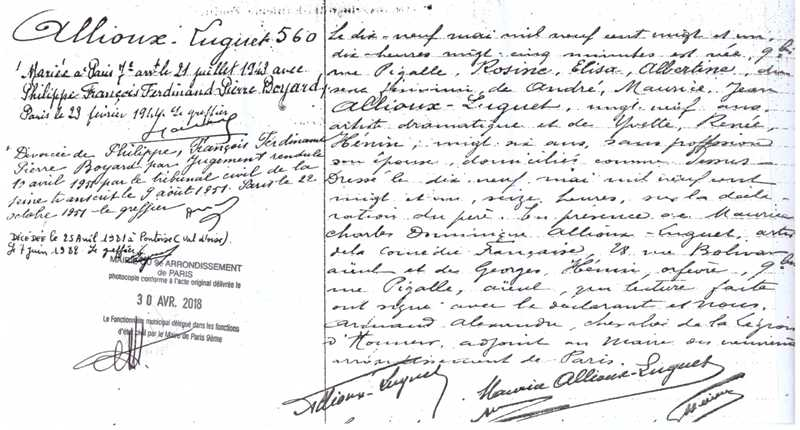 Allioux-Luguet 560
Mariée à Paris 7e arrt le 21 juillet 1943 avec
Philippe François Ferdinand Pierre Boyard
Paris le 23 février 1944 Le greffier
Divorcée de Philippe, François Ferdinand
Pierre Boyard par Jugement rendu le
avril 1951 par le tribunal civil de la
Seine transcrit le 9 août 1951. Paris le 22
octobre 1951 - le greffier
DÉCÉDÉE le 25 Avril 1981 à Pontoise (Val d'oise).
Le 7 juin 1988 Le greffier
MAIRIE DU 9e ARRONDISSEMENT
de PARIS
photocopie conforme à l'acte original délivrée le
30 AVR. 2018
Le Fonctionnaire municipal délégué dans les fonctions
d'état civil par le Maire de Paris 9ème
Le dix-neuf mai mil neuf cent vingt et un,
dix-heures vingt cinq minutes est née, 9 bis
rue Pigalle, Rosine, Elisa, Albertine, du
sexe féminin de André, Maurice, Jean
Allioux-Luguet, vingt neuf ans,
artiste dramatique et de Yvette, Renée,
Hénin, vingt six ans, sans profession
son épouse, domiciliés comme dessus —
Dressé le dix-neuf mai mil neuf cent
vingt et un, seize heures, sur la décla-
ration du père. En présence de Maurice
Charles Dominique Allioux-Luguet, artiste
de la comédie Française, 28, rue Bolivar
aïeul et des Georges, Hénin, orfèvre, 9 bis
rue Pigalle, aïeul, qui lecture faite
ont signé avec le déclarant et Nous,
Armand Alexandre, chevalier de la Légion
d'Honneur, adjoint au Maire du neuvième
arrondissement de Paris.
Allioux-Luguet
Maurice Allioux-Luguet